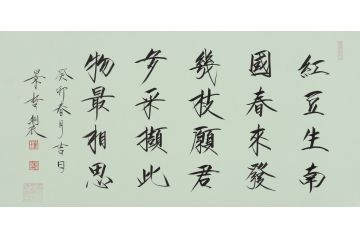 紅豆生南
國春來發
幾枝願君
多采擷此
物最相思
癸卯春月吉日